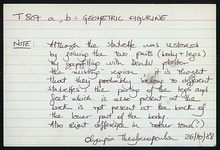 T.807 a, b : GEOMETRIC FIGURINE
NOTE: Although the statuette was restored
by joining the two parts (body + legs)
by gapfilling with dental plaster
the missing region, it is thought
that they probably belong to different
statuettes (the piercing of the legs and
feet which is also present at the
back is not present at the back of
the lower part of the body.
Also slight difference in colour tone?)
Olympia Theofanopoulou 26/10/88